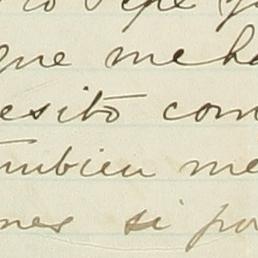 ro Pepe
que me ha
esito com
ambien me
nes si po